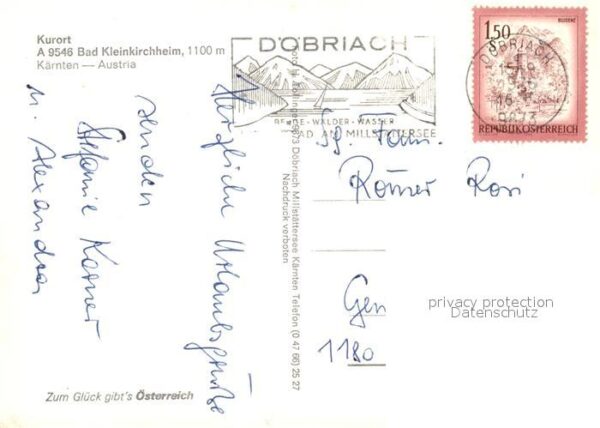 Kurort
A 9546 Bad Kleinkirchheim, 1100 m
Kärnten — Austria
Herzliche Urlaubsgrüße
senden
Stefanie
u. Alexandra
Zum Glück gibt's Österreich
9873 Döbriach Millstättersee Kärnten Telefon (0 47 66) 25 27
Nachdruck verboten
DÖBRIACH
BERGE · WÄLDER · WASSER
BAD AM MILLSTÄTTERSEE
1,50
S
BLUDENZ
REPUBLIK ÖSTERREICH
DÖBRIACH
9873
Fam.
Römer Rosi
1180
privacy protection
Datenschutz